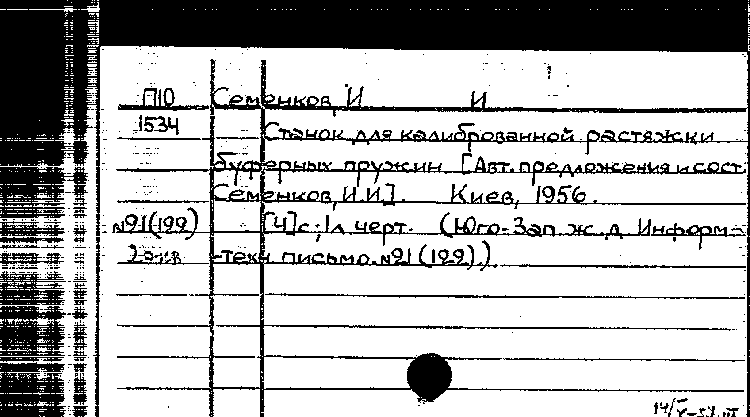 П10 Семенков, И И
1534 Станок для калиброванной растяжки
буферных пружин [Авт. предложения и сост.
Семенков, И.И]. Киев, 1956.
№21(122) [4]с; 1л черт. (Юго-Зап ж.д Информ-
2-экз -техн письмо №21 (122))
14/V-57